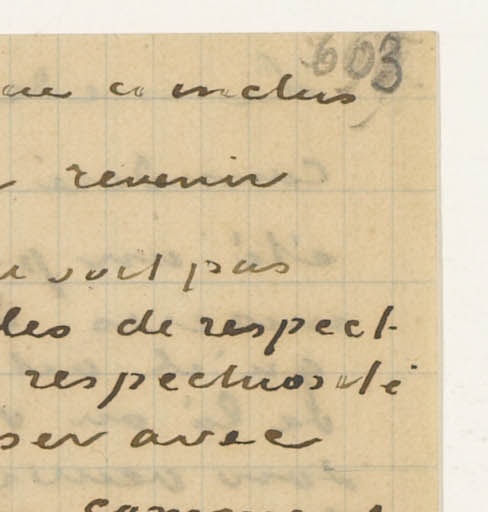 603
inclus
revenir
soit pas
les de respect
respectuosité
ser avec
comme